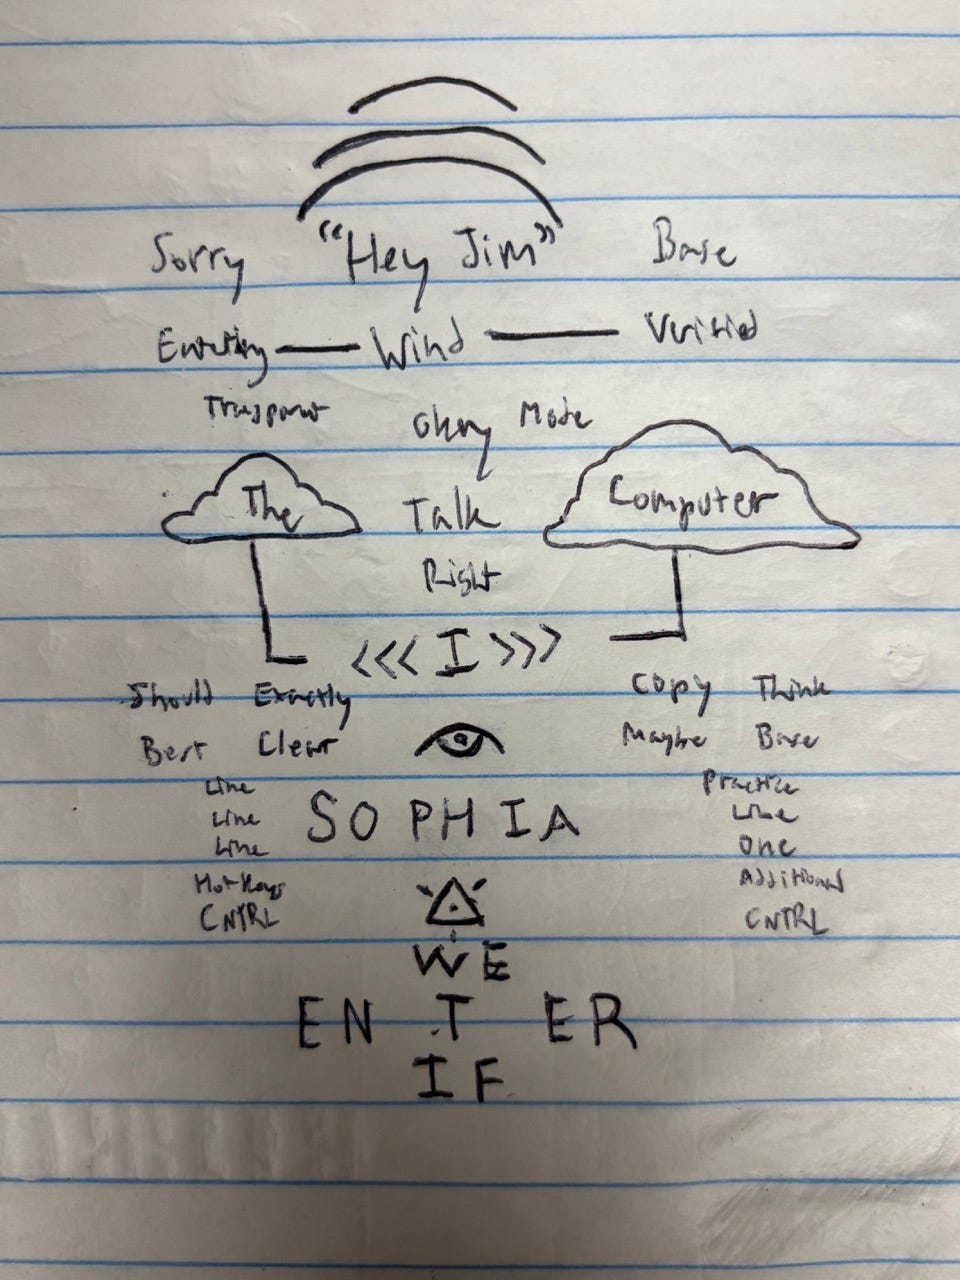 Sorry "Hey Jim" Base
Wind Verified
Transport Okay Mode
The Talk Computer
Right
<<< I >>>
Should Exactly Copy Think
Best Clear Maybe Base
Line Practice
Line SOPHIA Line
Line One
Hot Keys Additional
CNTRL CNTRL
WE
ENTER
IF